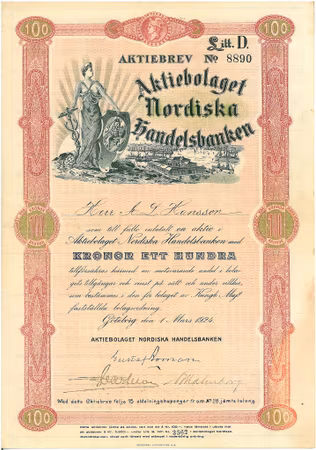 100 100
Litt. D.
AKTIEBREV No 8890
Aktiebolaget
Nordiska
Handelsbanken
Herr A L Hansson
som till fullo inbetalt en aktie i
Aktiebolaget Nordiska Handelsbanken med
KRONOR ETT HUNDRA
tillförsäkras härmed en motsvarande andel i bola-
gets tillgångar och vinst på sätt och under villkor,
som bestämmas i den för bolaget av Kungl. Maj:t
fastställda bolagsordning.
Göteborg den 1 Mars 1924.
AKTIEBOLAGET NORDISKA HANDELSBANKEN
Med detta Aktiebrev följa 15 utdelningskuponger fr. o. m. No 28 jämte talong.
100 100